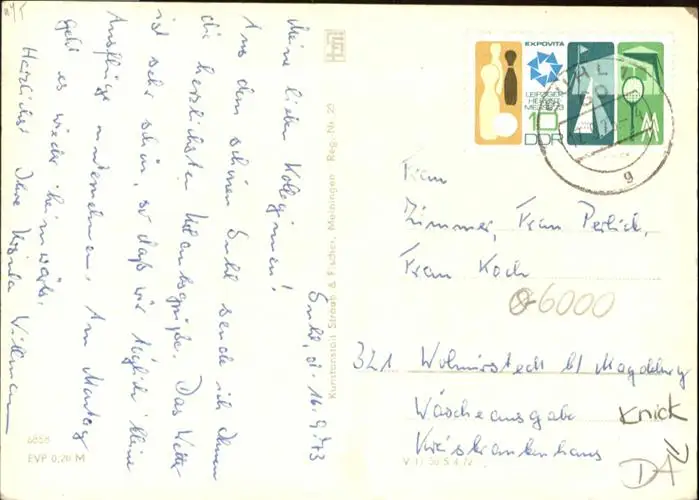 Suhl, d. 16.9.73
Meine lieben Kolleginnen!
Aus dem schönen Suhl sende ich Ihnen
die herzlichsten Urlaubsgrüße. Das Wetter
ist sehr schön, so daß wir täglich kleine
Ausflüge unternehmen. Am Montag
geht es wieder heimwärts.
Herzlichst Ihre Ursula
Kunstanstalt Straub & Fischer, Meiningen Reg. Nr. 23
6858
EVP 0,20 M
EXPOVITA
LEIPZIGER
HERBST-
MESSE 1973
10
DDR
SUHL
g
Frau
Zimmer, Frau Perlich,
Frau Koch
6000
321 Wolmirstedt b/ Magdeburg
Wäscheausgabe
Kreiskrankenhaus
Knick
DA